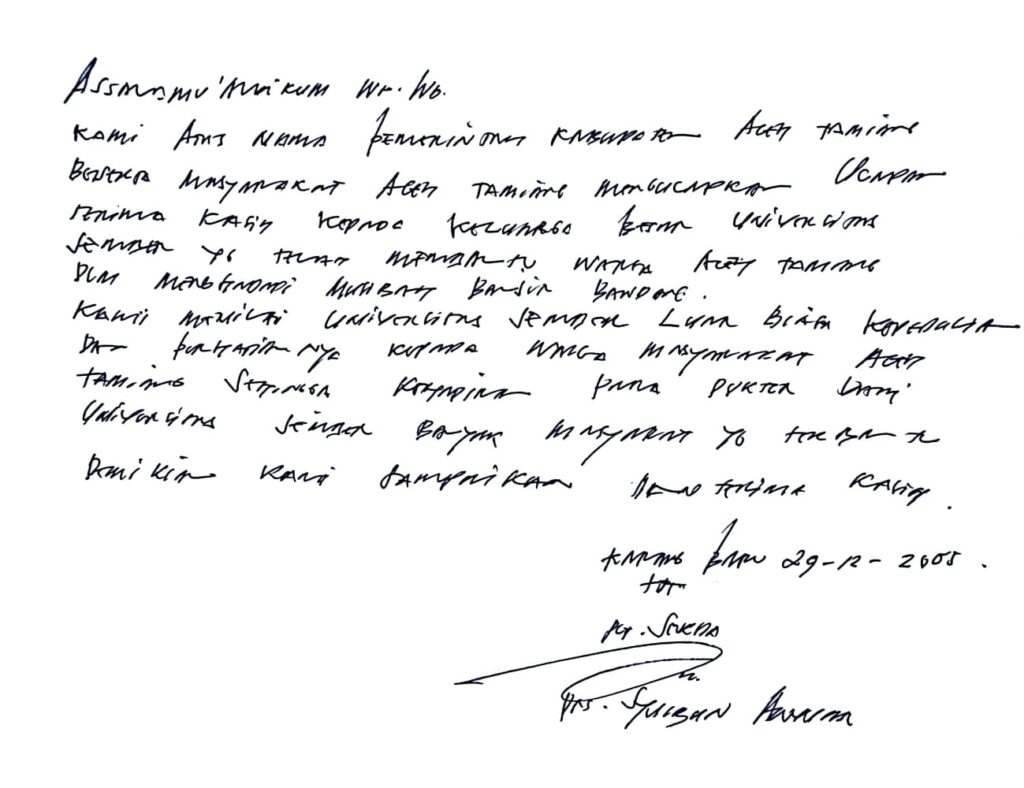 Assalamu'alaikum Wr. Wb.
Kami Atas Nama Pemerintah Kabupaten Aceh Tamiang
Beserta Masyarakat Aceh Tamiang Mengucapkan Ucapan
Terima Kasih Kepada Keluarga Besar Universitas
Jember yg telah membantu warga Aceh Tamiang
Dlm menghadapi Musibah Banjir Bandang.
Kami menilai Universitas Jember Luar Biasa Kepedulian
Dan perhatiannya kepada warga masyarakat Aceh
Tamiang Sehingga Kehadiran para Dokter dari
Universitas Jember Banyak masyarakat yg terbantu
Demikian Kami Sampaikan Dan terima Kasih.
Karang Baru 29-12-2005.
Plt. Sekda
Drs. Syuiban